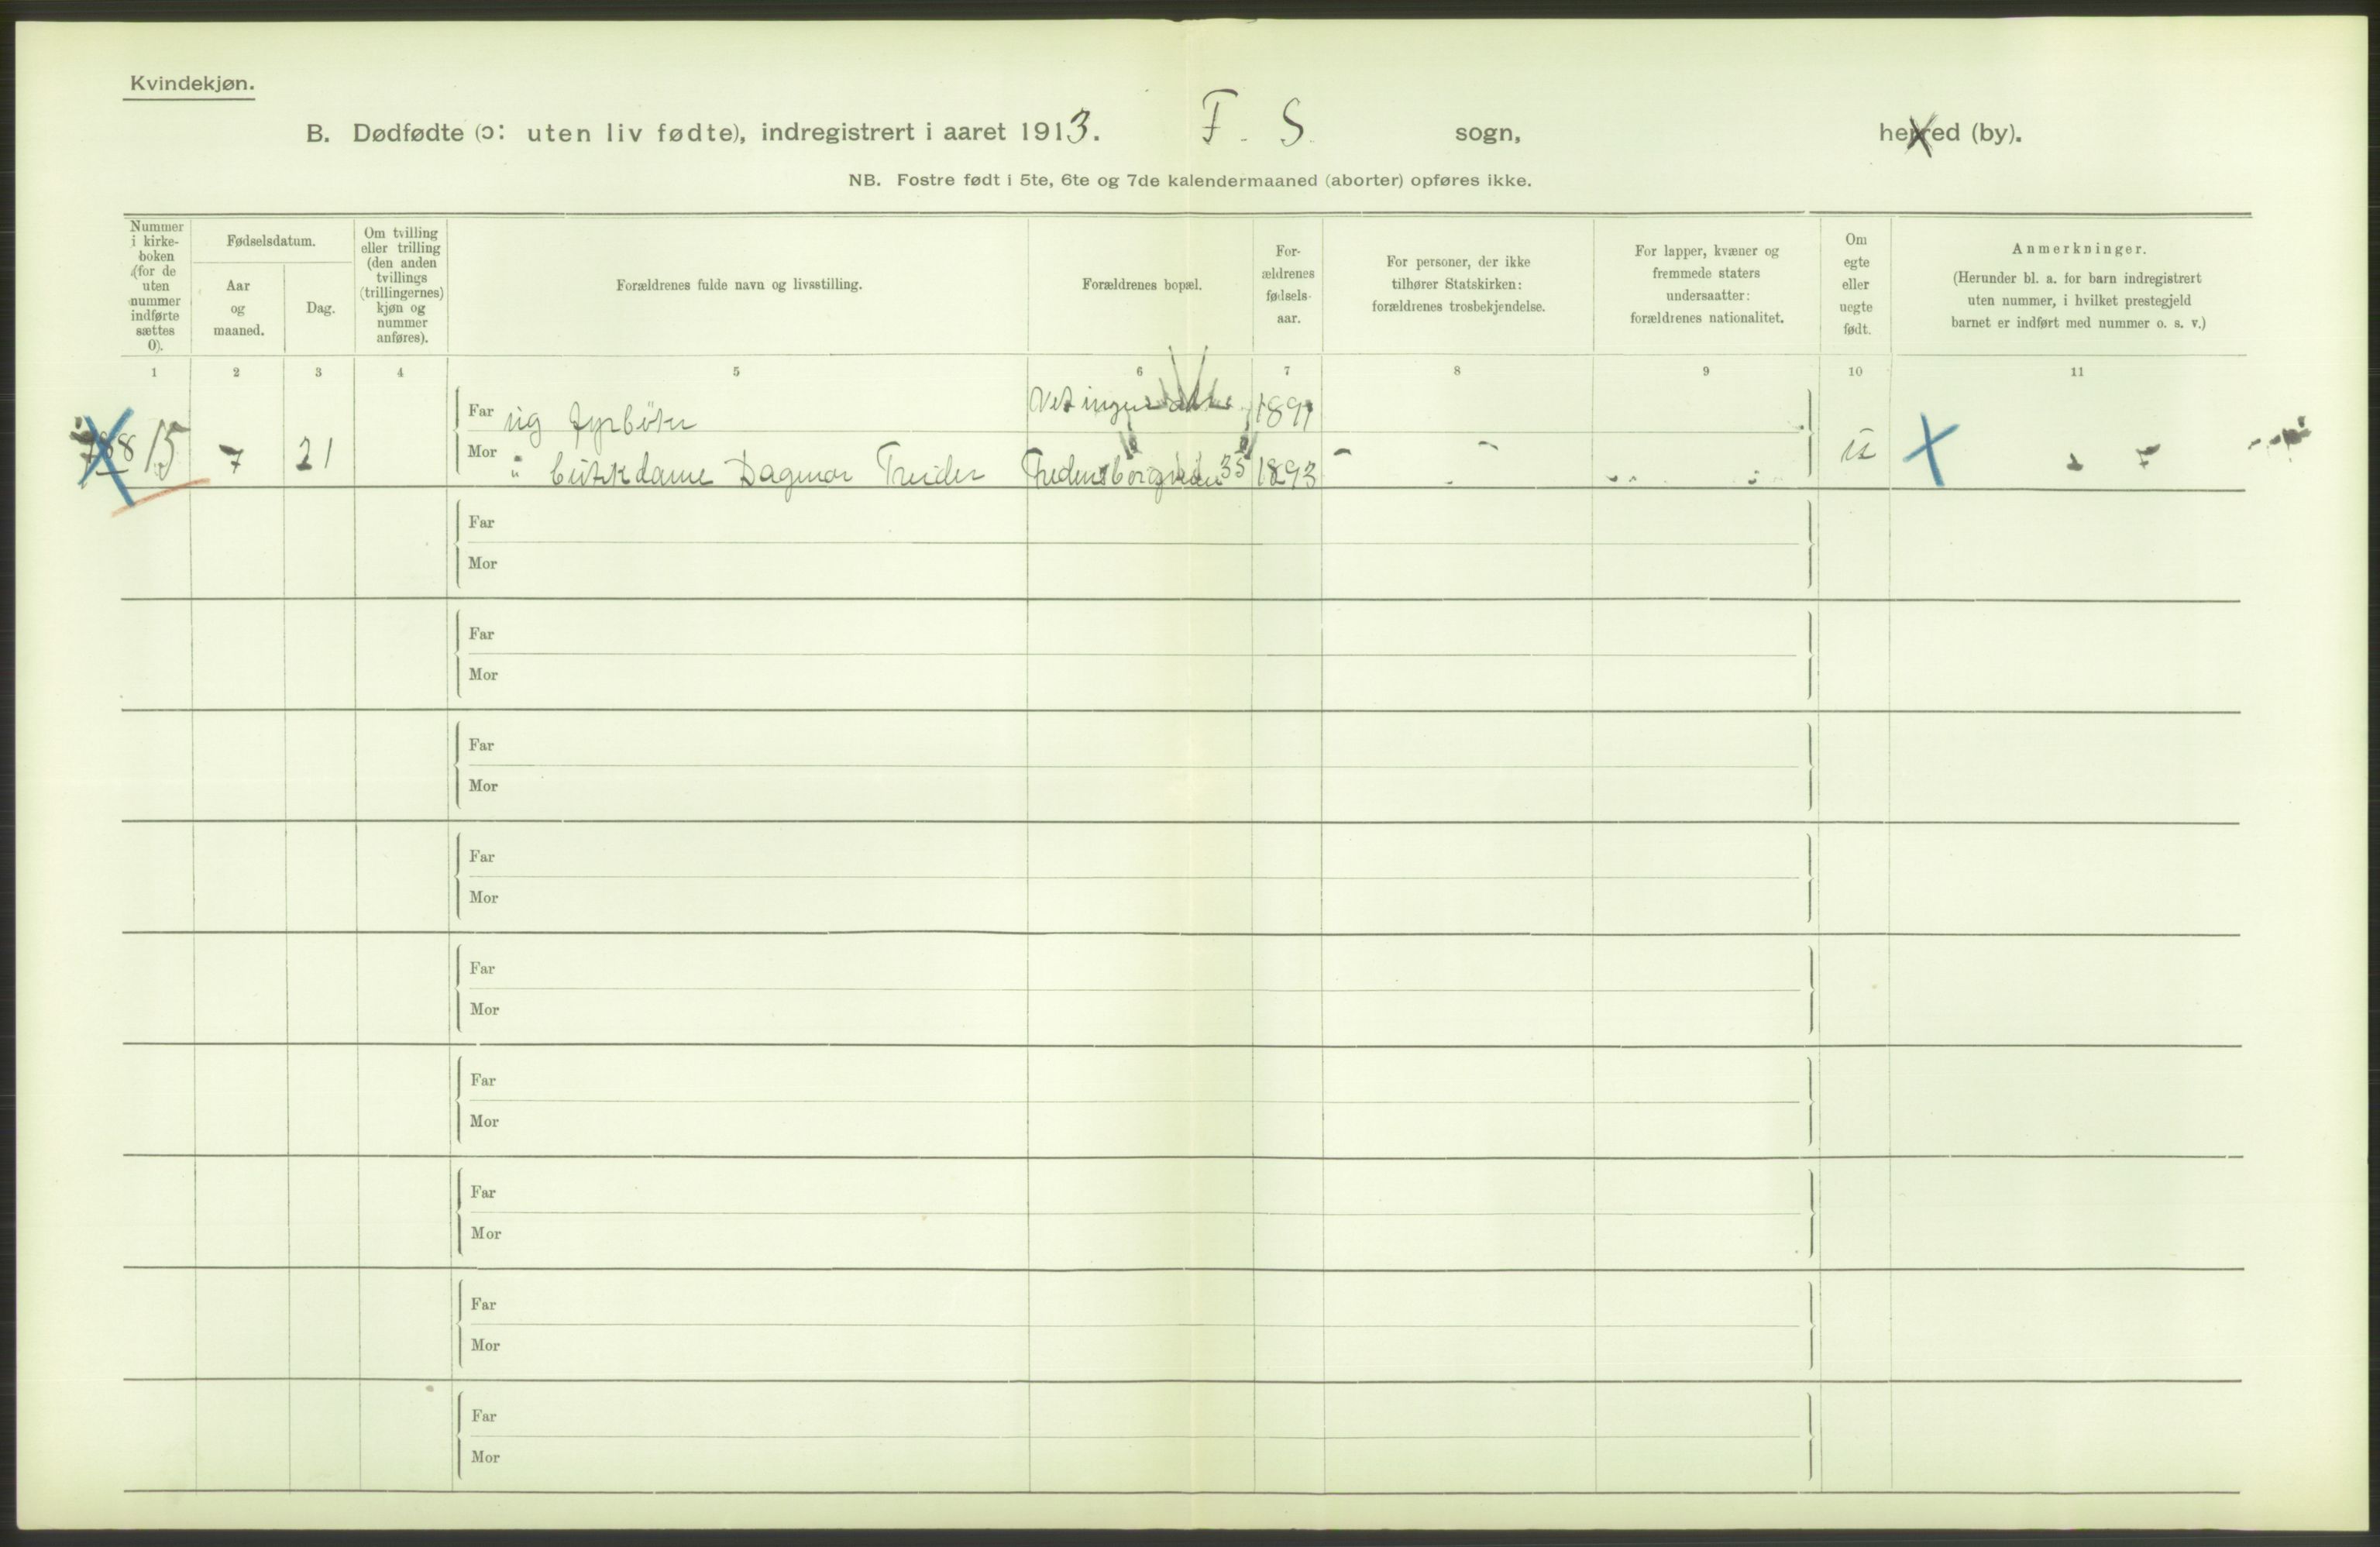 Kvindekjøn.
B. Dødfødte (ɔ: uten liv fødte), indregistrert i aaret 1913. F. S. sogn, herred (by).
NB. Fostre født i 5te, 6te og 7de kalendermaaned (aborter) opføres ikke.
Nummer i kirke- boken (for de uten nummer indførte sættes 0).
Fødselsdatum.
Aar og maaned.
Dag.
Om tvilling eller trilling (den anden tvillings (trillingernes) kjøn og nummer anføres).
Forældrenes fulde navn og livsstilling.
Forældrenes bopæl.
For- ældrenes fødsels- aar.
For personer, der ikke tilhører Statskirken: forældrenes trosbekjendelse.
For lapper, kvæner og fremmede staters undersaatter: forældrenes nationalitet.
Om egte eller uegte født.
Anmerkninger.
(Herunder bl. a. for barn indregistrert uten nummer, i hvilket prestegjeld barnet er indført med nummer o. s. v.)
1 2 3 4 5 6 7 8 9 10 11
Far ug fyrböter 1891
788 15 7 21
Mor " butikdame Dagmar Treider Fredensborgveien 35 1893
Far
Mor
Far
Mor
Far
Mor
Far
Mor
Far
Mor
Far
Mor
Far
Mor
Far
Mor
Far
Mor